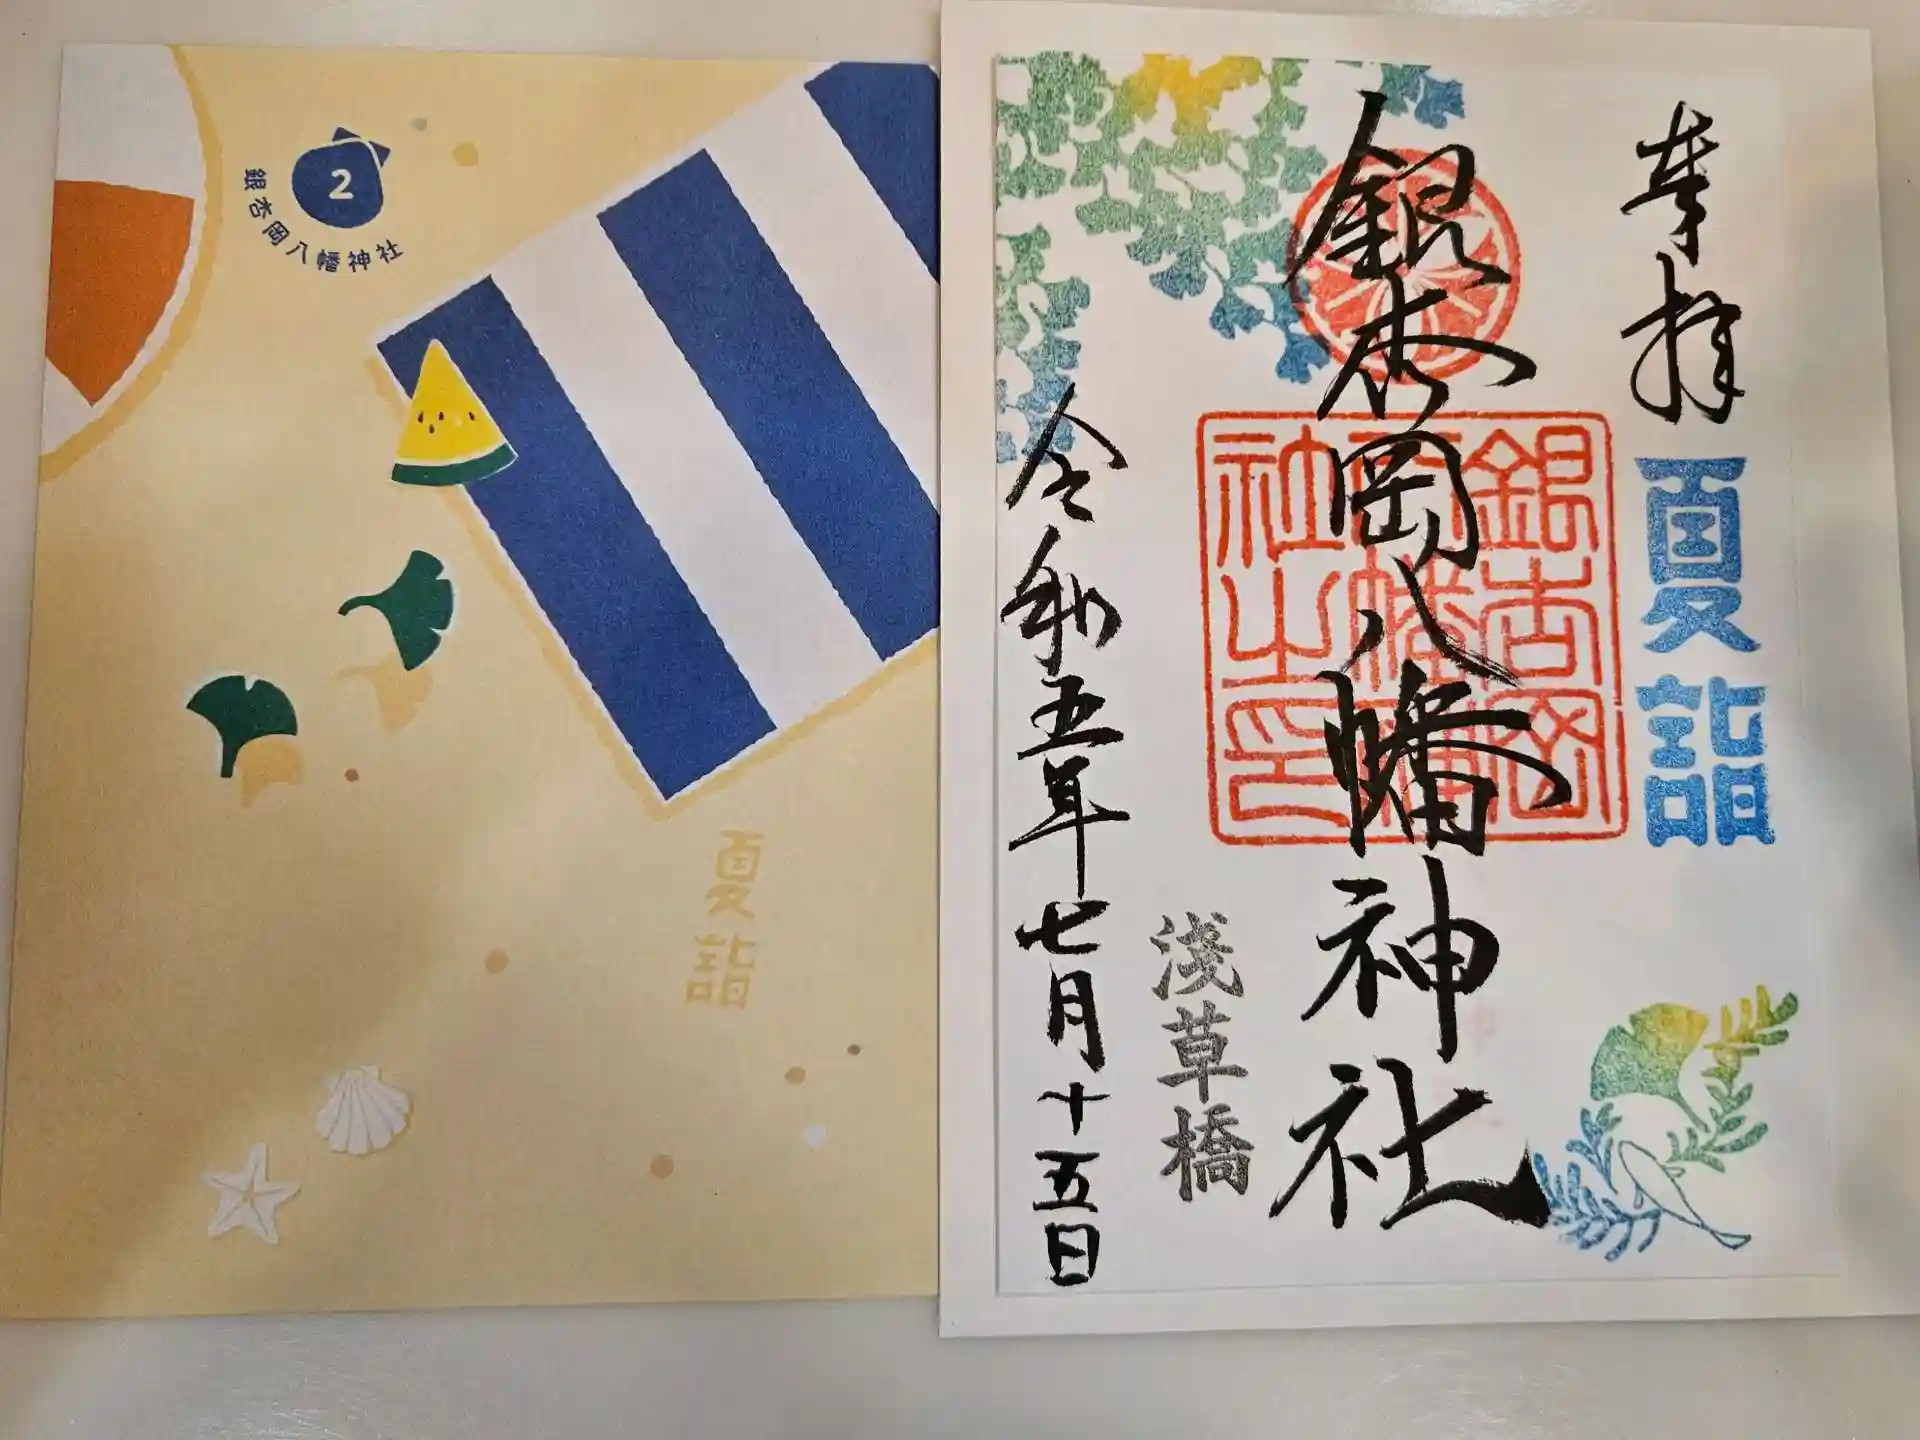 2
銀杏岡八幡神社
夏詣
奉拝
夏詣
銀杏岡八幡神社
銀杏岡八幡神社之印
浅草橋
令和五年七月十五日